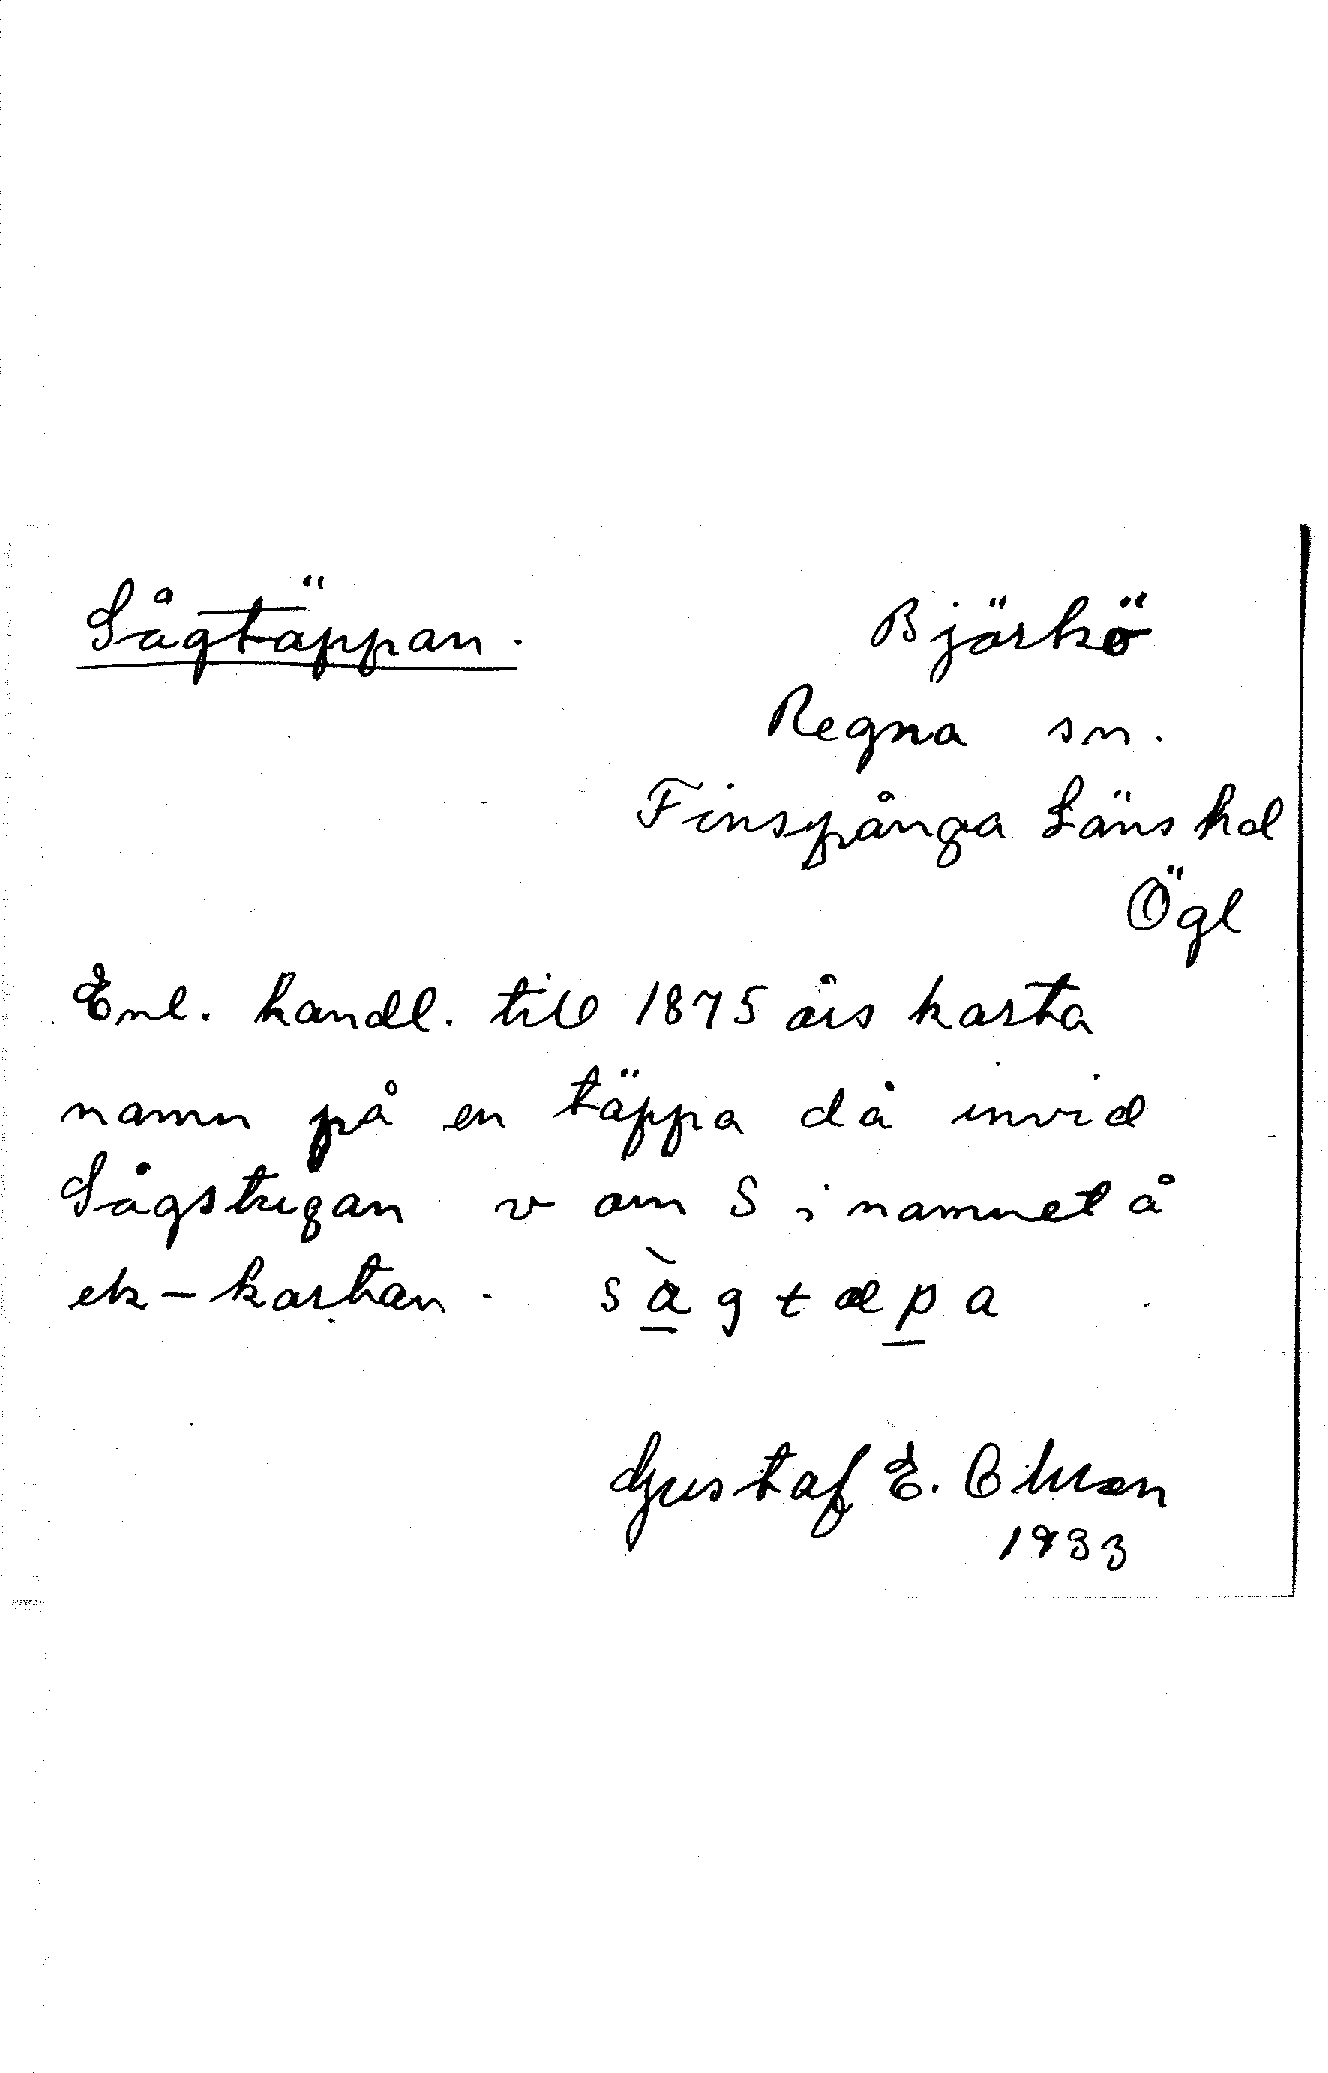 Sågtäppan.
Björkö
Regna sn.
Finspånga Läns hd
Ögl
Enl. handl. till 1875 års karta
namn på en täppa då invid
Sågstugan v om S i namnet å
ek-kartan. sàgtæpa
Gustaf E.
1933